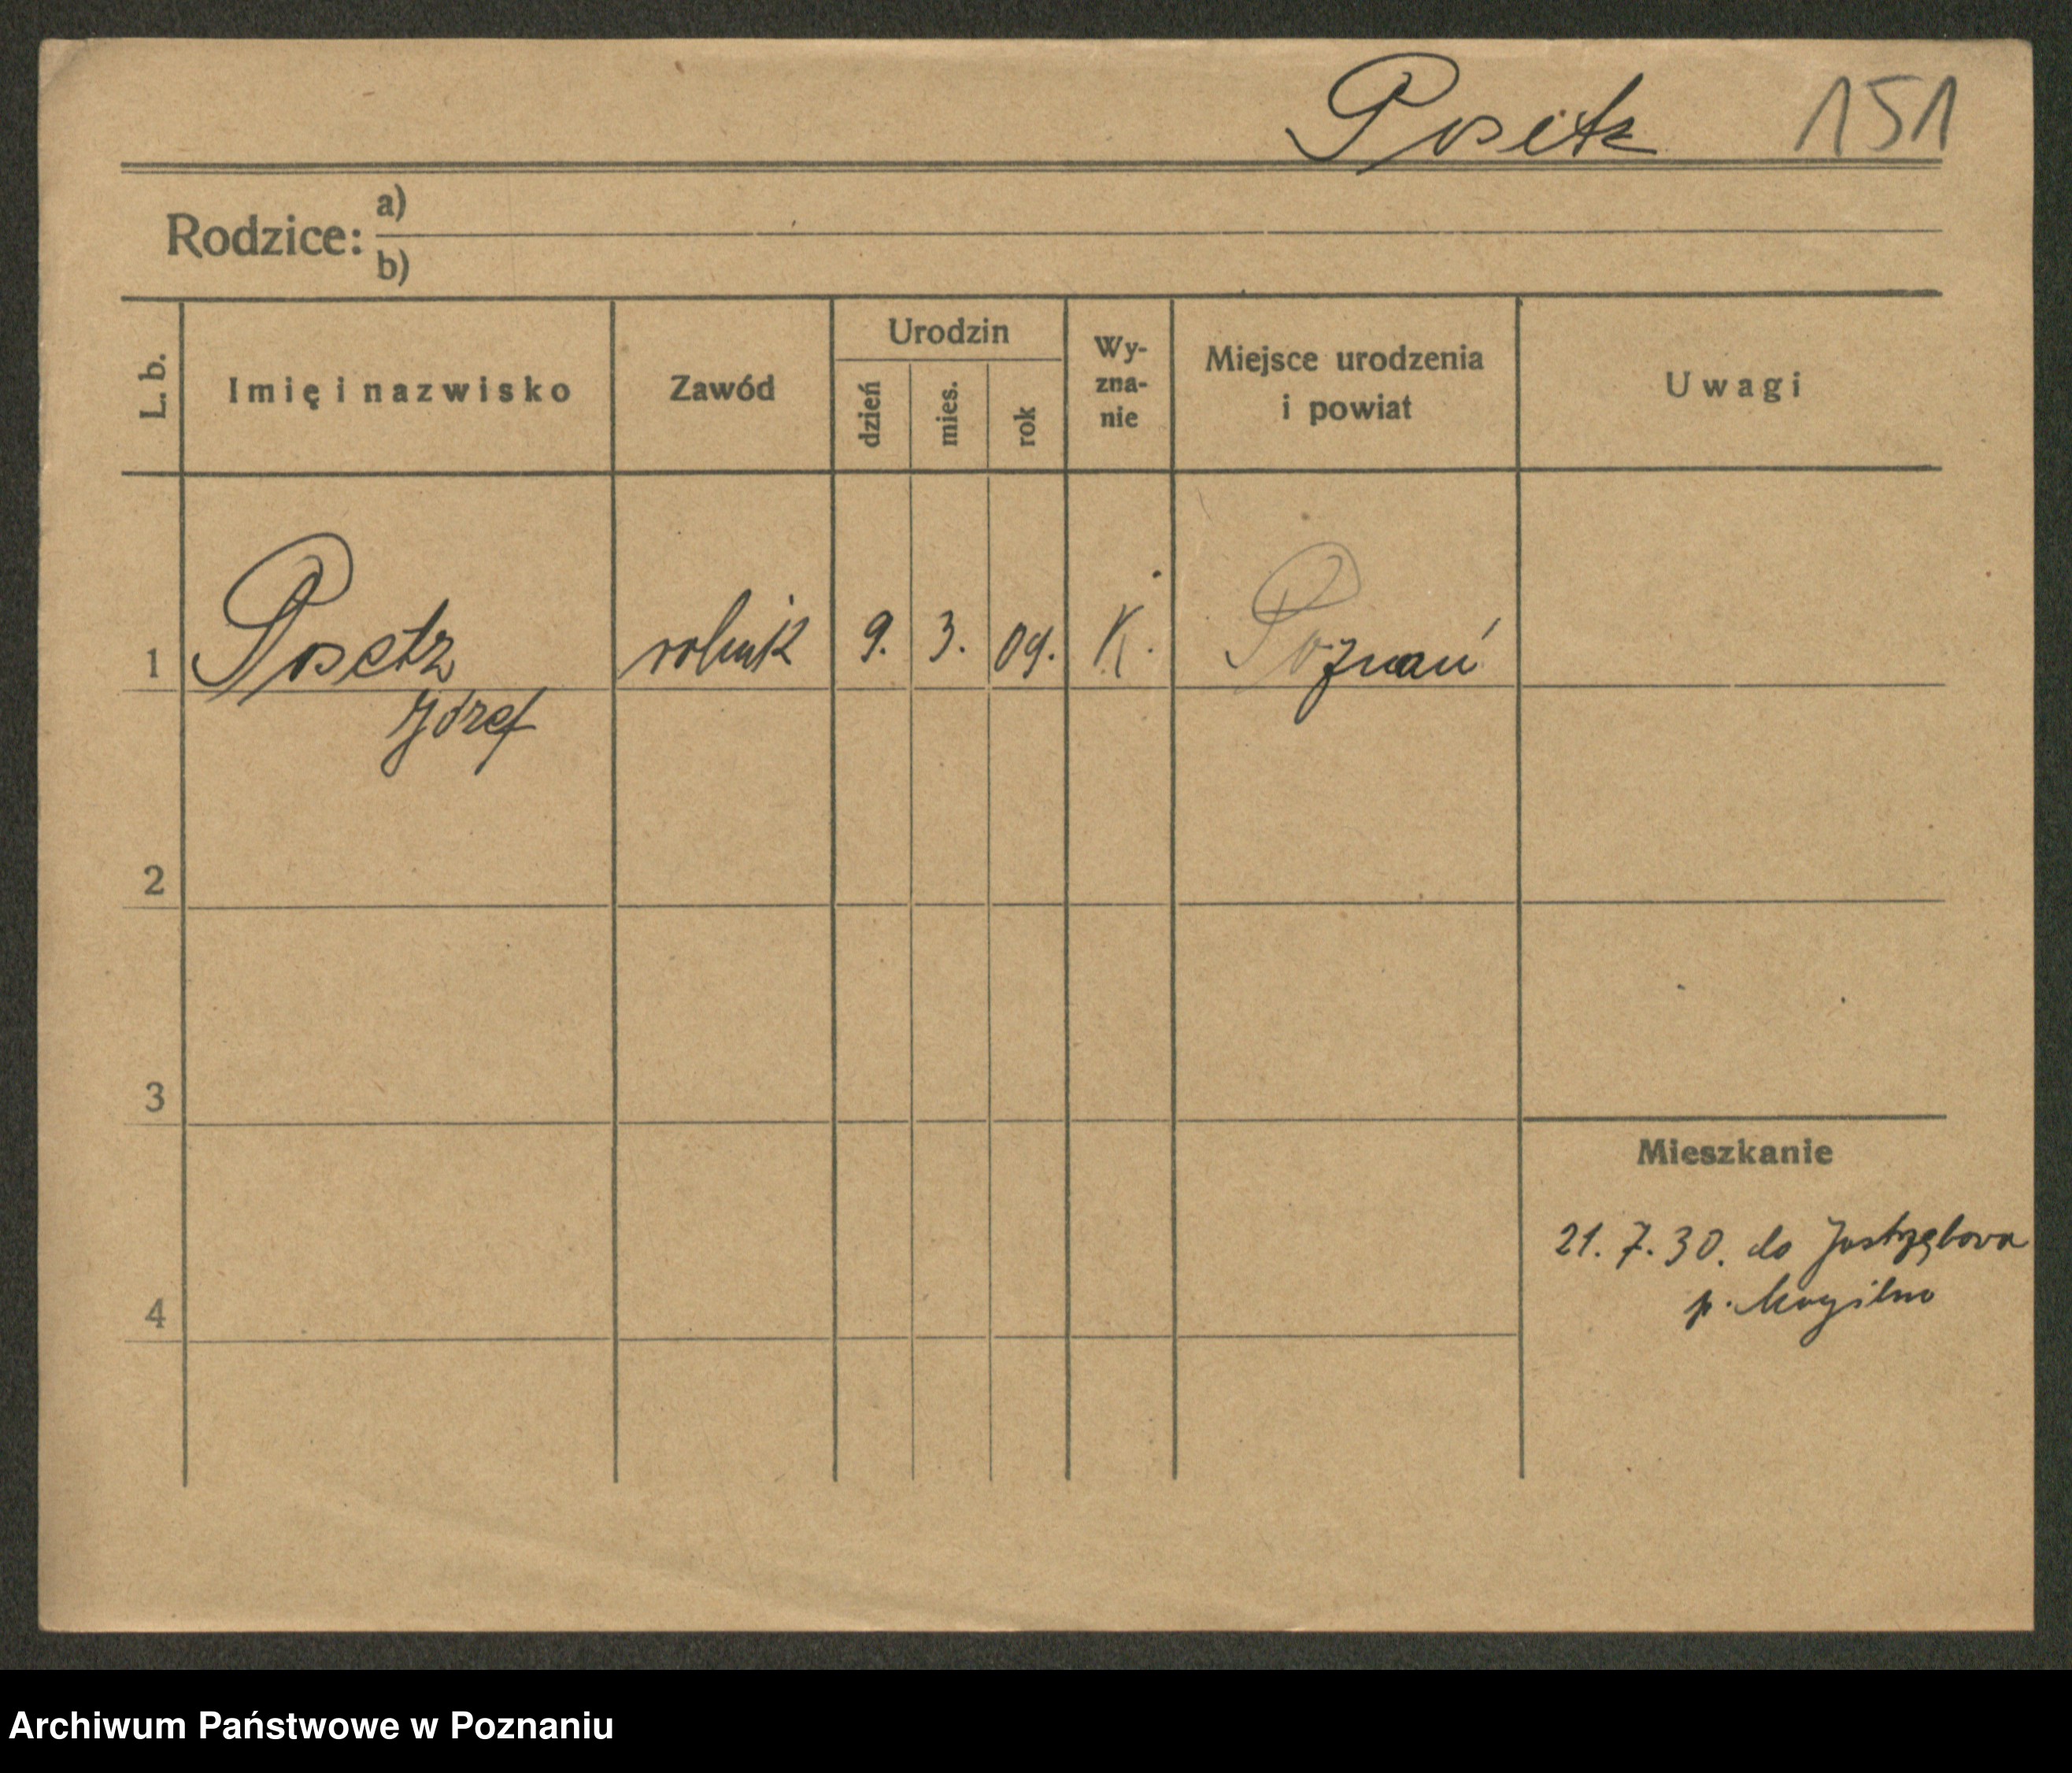 Posetz 151
Rodzice: a)
b)
L. b. Imię i nazwisko Zawód Urodzin dzień mies. rok Wy-zna-nie Miejsce urodzenia i powiat Uwagi
1 Posetz rolnik 9. 3. 09. K. Poznań
Józef
2
3
Mieszkanie
21. 7. 30. do Jastrzębowa
p. Mogilno
4
Archiwum Państwowe w Poznaniu